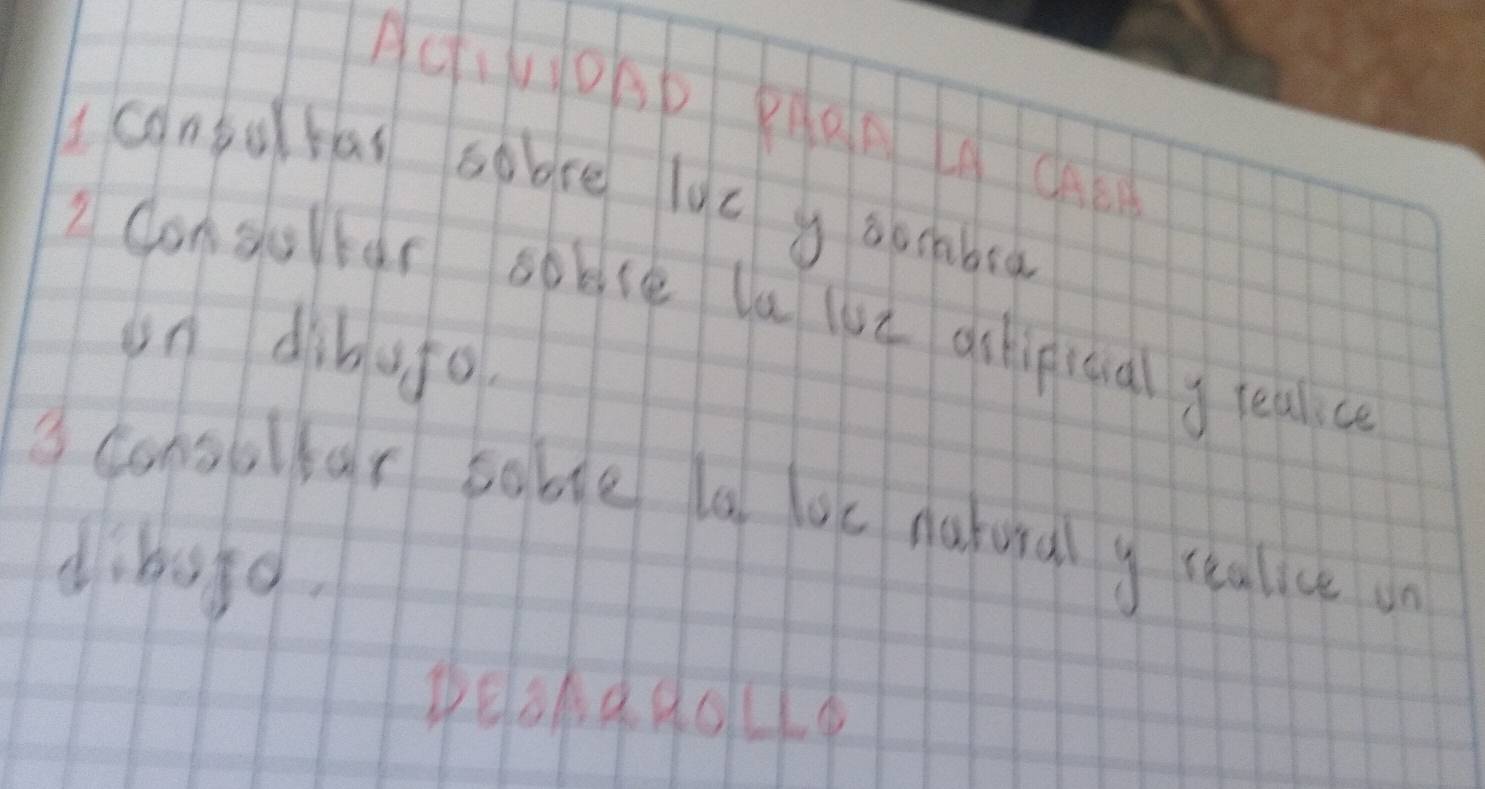 ACTIVIDAD PARA LA CASA
1 consultar sobre luc y sombra
2 Consultar sobre la luc artificial y realice
un dibujo.
3 consultar sobre la luc natural y realice un
dibujo.
DESARROLLO